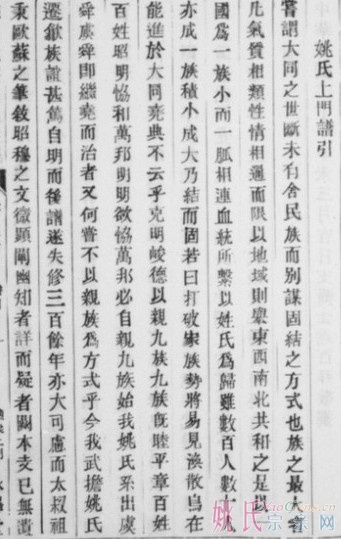 姚氏上門譜引
嘗謂大同之世斷未有舍民族而別謀固結之方式也族之最大者
凡氣質相類性情相通而限以地域則舉東西南北共和之是以一
國為一族小而一脈相連血統所繫以姓氏為歸雖數百人數十人
亦成一族積小成大乃結而固若曰打破家族勢將易見渙散烏在
能進於大同堯典不云乎克明峻德以親九族九族旣睦平章百姓
百姓昭明協和萬邦明明欲協萬邦必自親九族始我姚氏系出虞
舜虞舜即繼堯而治者又何嘗不以親族為方式乎今我武擔姚氏
遷徙族誼甚篤自明而後譜遂失修三百餘年亦大可慮而太叔祖
秉歐蘇之筆敘昭穆之文徵顯闡幽知者詳而疑者闕本支已無遺
姚氏宗親网